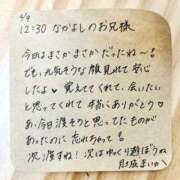 4/4
12:30 なかよしのお兄様
今日はまさかまさかだったね〜!
でも、元気そうな顔見れて安心
したよ♥ 覚えてくれて、会いたい
と思ってくれて本当にありがとう♡
あ、今日渡そうと思ってたもの
があったのに忘れちゃって!
次、渡すね! 次はゆっくり遊ぼうね
まいゆ